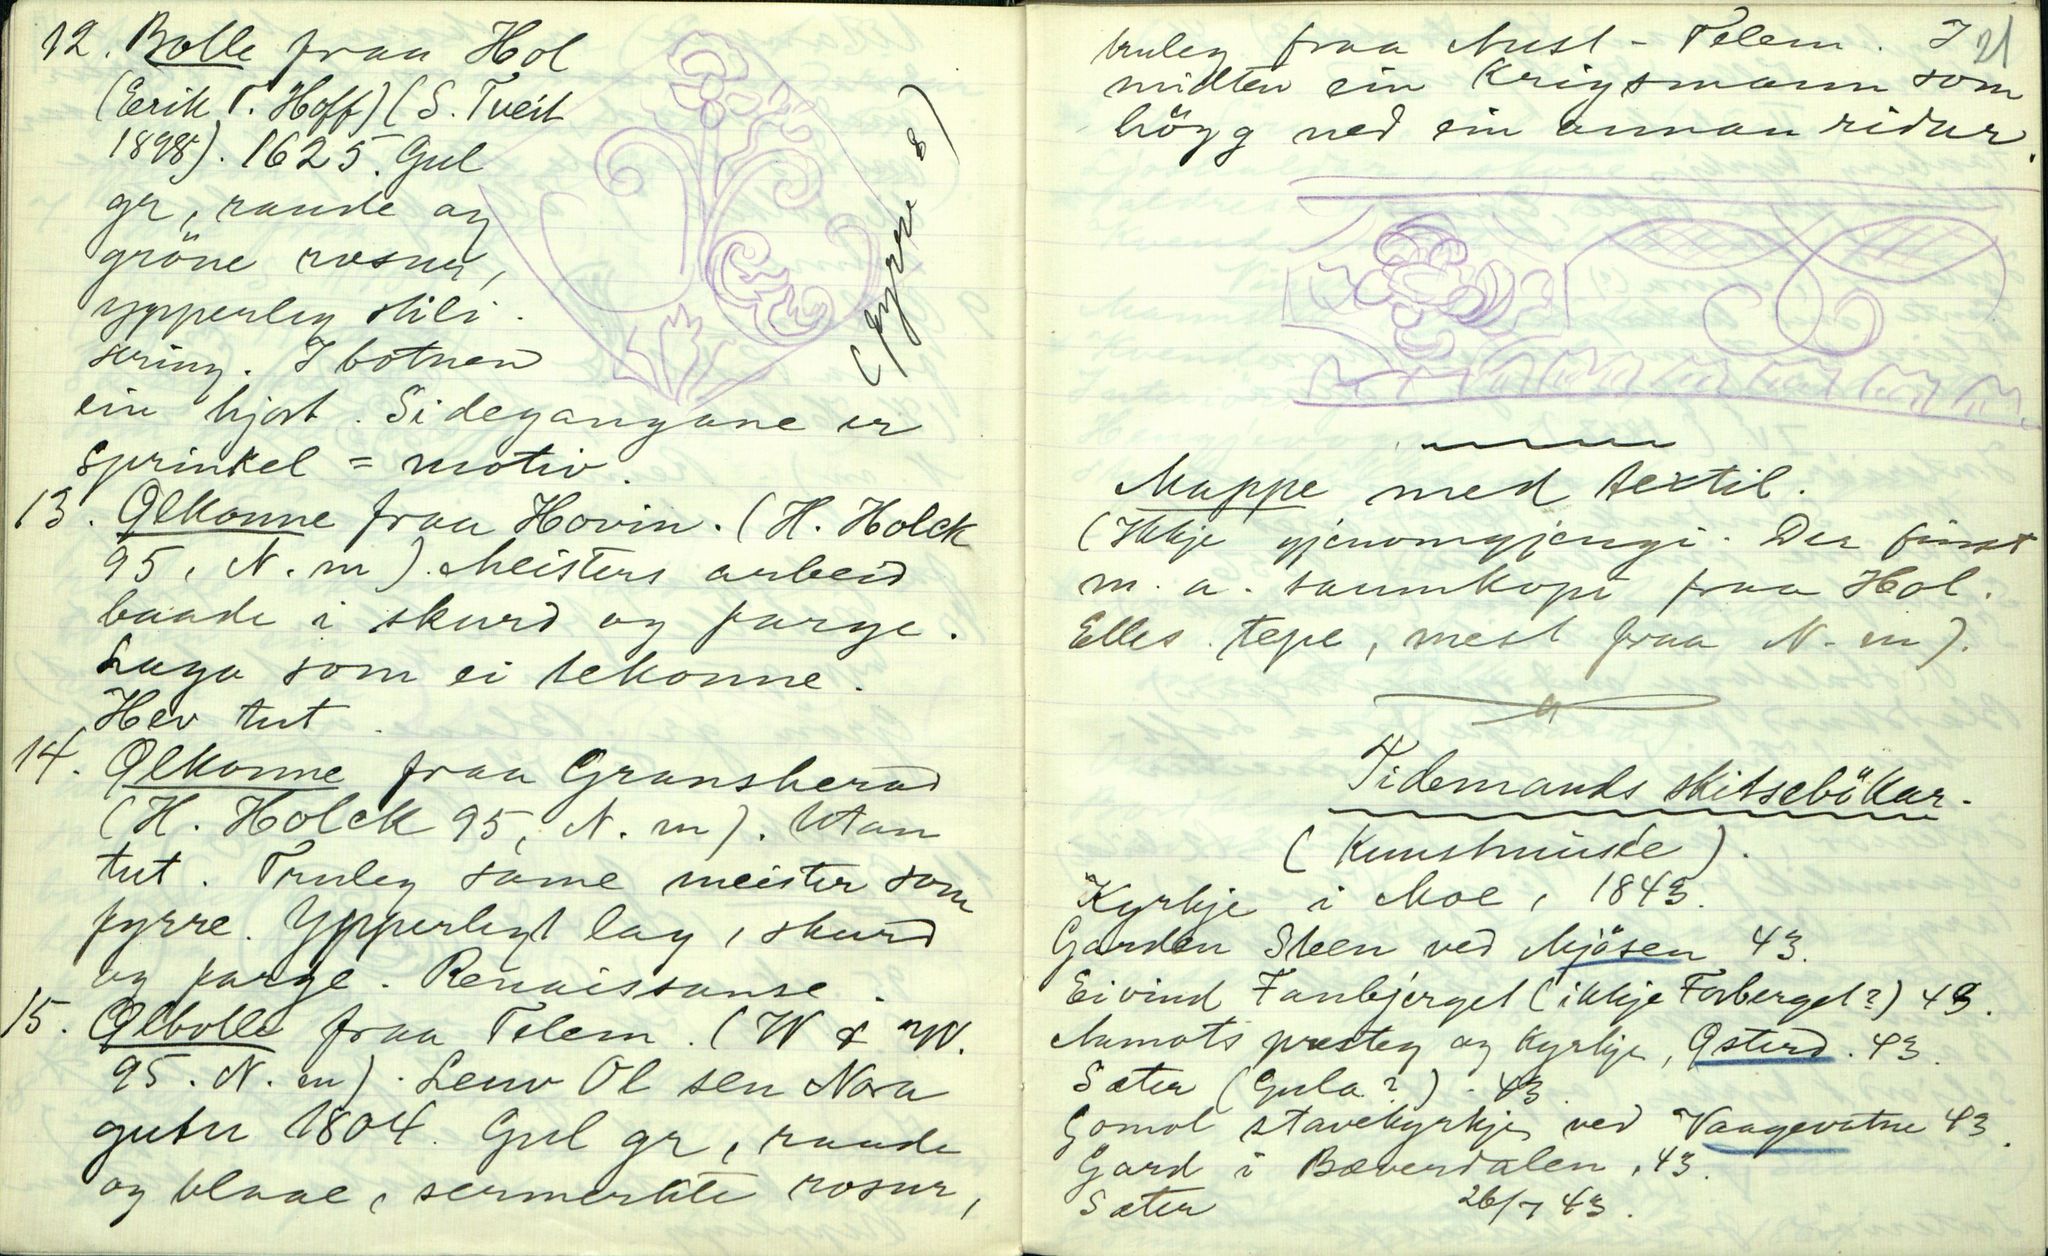 12. Bolle fraa Hol
(Eerik T. Hoff) (S. Tveit
1898). 1625. Gul
gr, raude og
gröne rosur,
ypperleg stili-
sering. I botnen
ein hjort. Sidegangane er
sprinkel = motiv.
13. Ølkanne fraa Hovin. (H. Holck
95, N. m). Meisters arbeid
baade i skurd og farge.
Laga som ei tekanne.
Hev tut.
14. Ølkanne fraa Gransherad
(H. Holck 95, N. m). Utan
tut. Truleg same meister som
fyrre. Ypperlegt lag, skurd
og farge. Renaissanse.
15. Ølbolle fraa Telem. (W & W.
95. N. m). Senv Ol sen Nora
guten 1804. Gul gr, raude
og blaae, sermerkte rosur,
(fyrre 8)
21
truleg fraa Aust-Telem. I
midten ein Krigsmann som
högg ned ein annan ridar.
Mappe med textil.
(Ikkje gjenomgjengi. Der finst
m. a. saumkopi fraa Hol.
Elles tepe, mest fraa N. m).
Tidemands skitsebökar.
(Kunstmusée).
Kyrkje i Moe, 1843.
Garden Steen ved Mjösen 43.
Eivind Fanbjerget (ikkje Forberget?) 43.
Aamots presteg og Kyrkje, Østerd. 43.
Sæter (Gula?). 43.
Gamol stavekyrkje ved Vaagevatne 43.
Gard i Bæverdalen, 43.
Sæter 26/7 43.